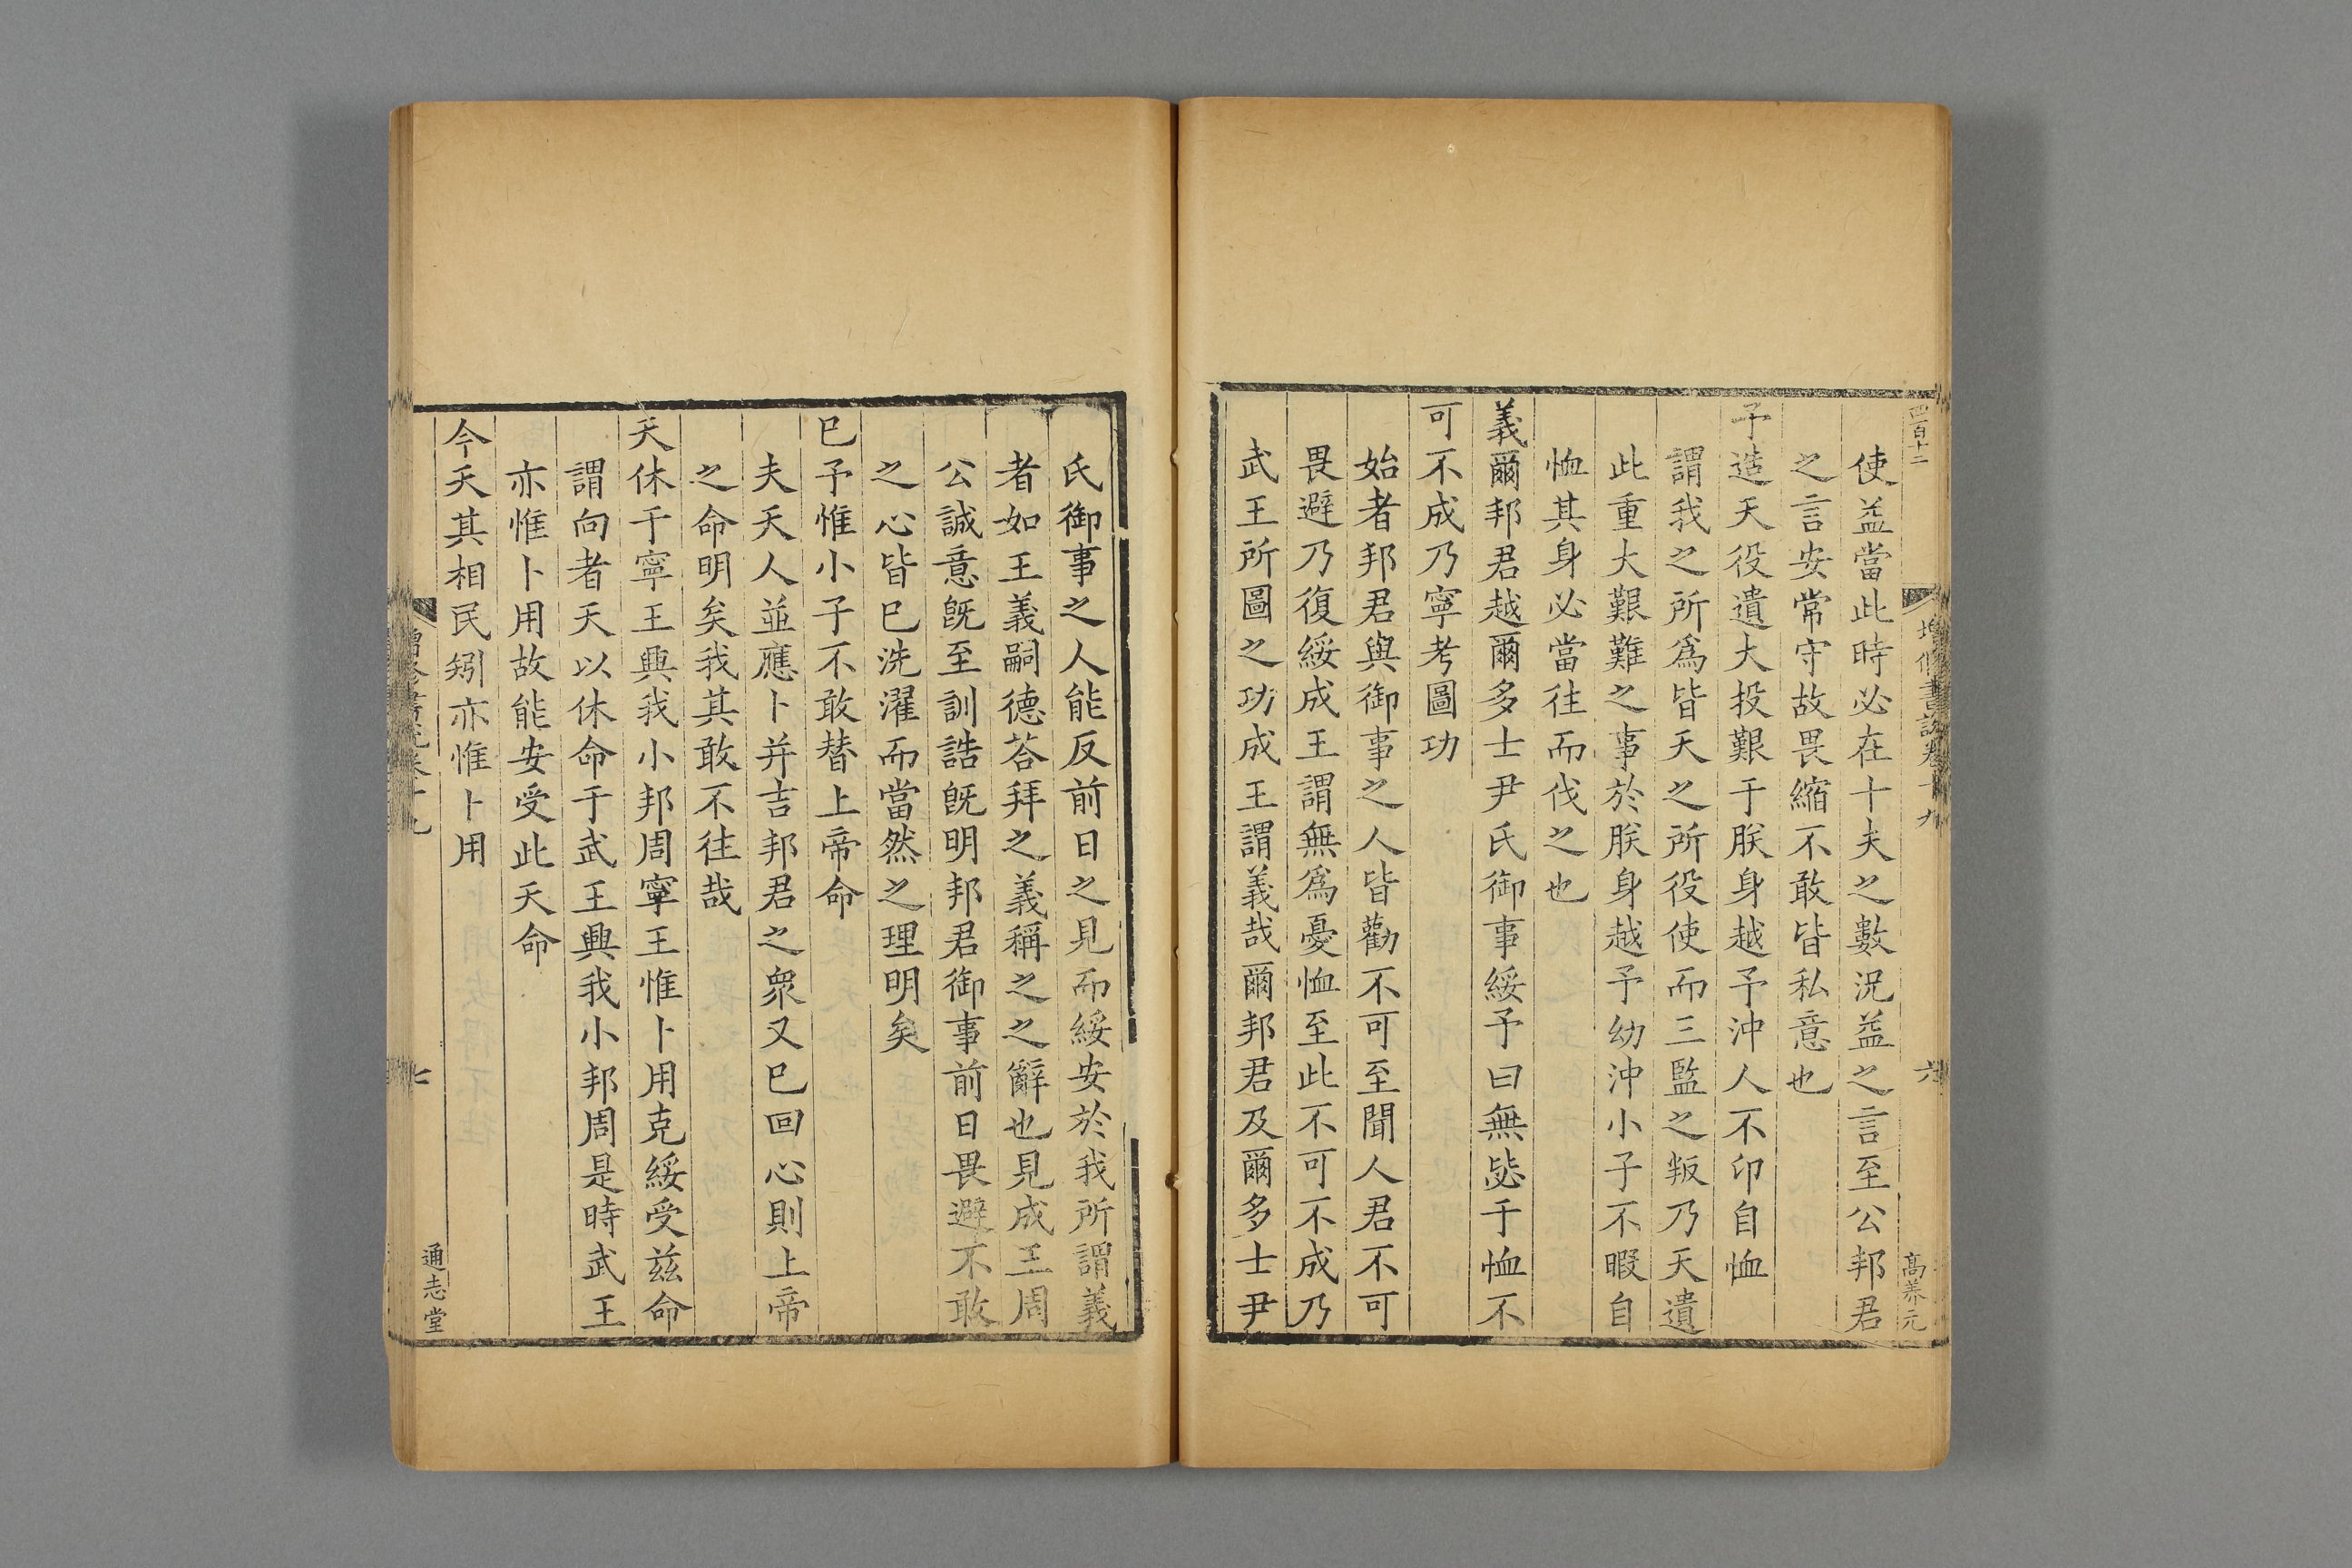 四百十二
增修書說卷十九
六
高養元
使益當此時必在十夫之數況益之言至公邦君
之言安常守故畏縮不敢皆私意也
予造天役遺大投艱于朕身越予沖人不卬自恤
謂我之所爲皆天之所役使而三監之叛乃天遺
此重大艱難之事於朕身越予幼沖小子不暇自
恤其身必當往而伐之也
義爾邦君越爾多士尹氏御事綏予曰無毖于恤不
可不成乃寧考圖功
始者邦君與御事之人皆勸不可至聞人君不可
畏避乃復綏成王謂無爲憂恤至此不可不成乃
武王所圖之功成王謂義哉爾邦君及爾多士尹
氏御事之人能反前日之見而綏安於我所謂義
者如王義嗣德荅拜之義稱之之辭也見成王周
公誠意旣至訓誥旣明邦君御事前日畏避不敢
之心皆巳洗濯而當然之理明矣
巳予惟小子不敢替上帝命
夫天人並應卜并吉邦君之衆又巳回心則上帝
之命明矣我其敢不往哉
天休于寧王興我小邦周寧王惟卜用克綏受兹命
謂向者天以休命于武王興我小邦周是時武王
亦惟卜用故能安受此天命
今天其相民矧亦惟卜用
增修書說卷十九
七
通志堂